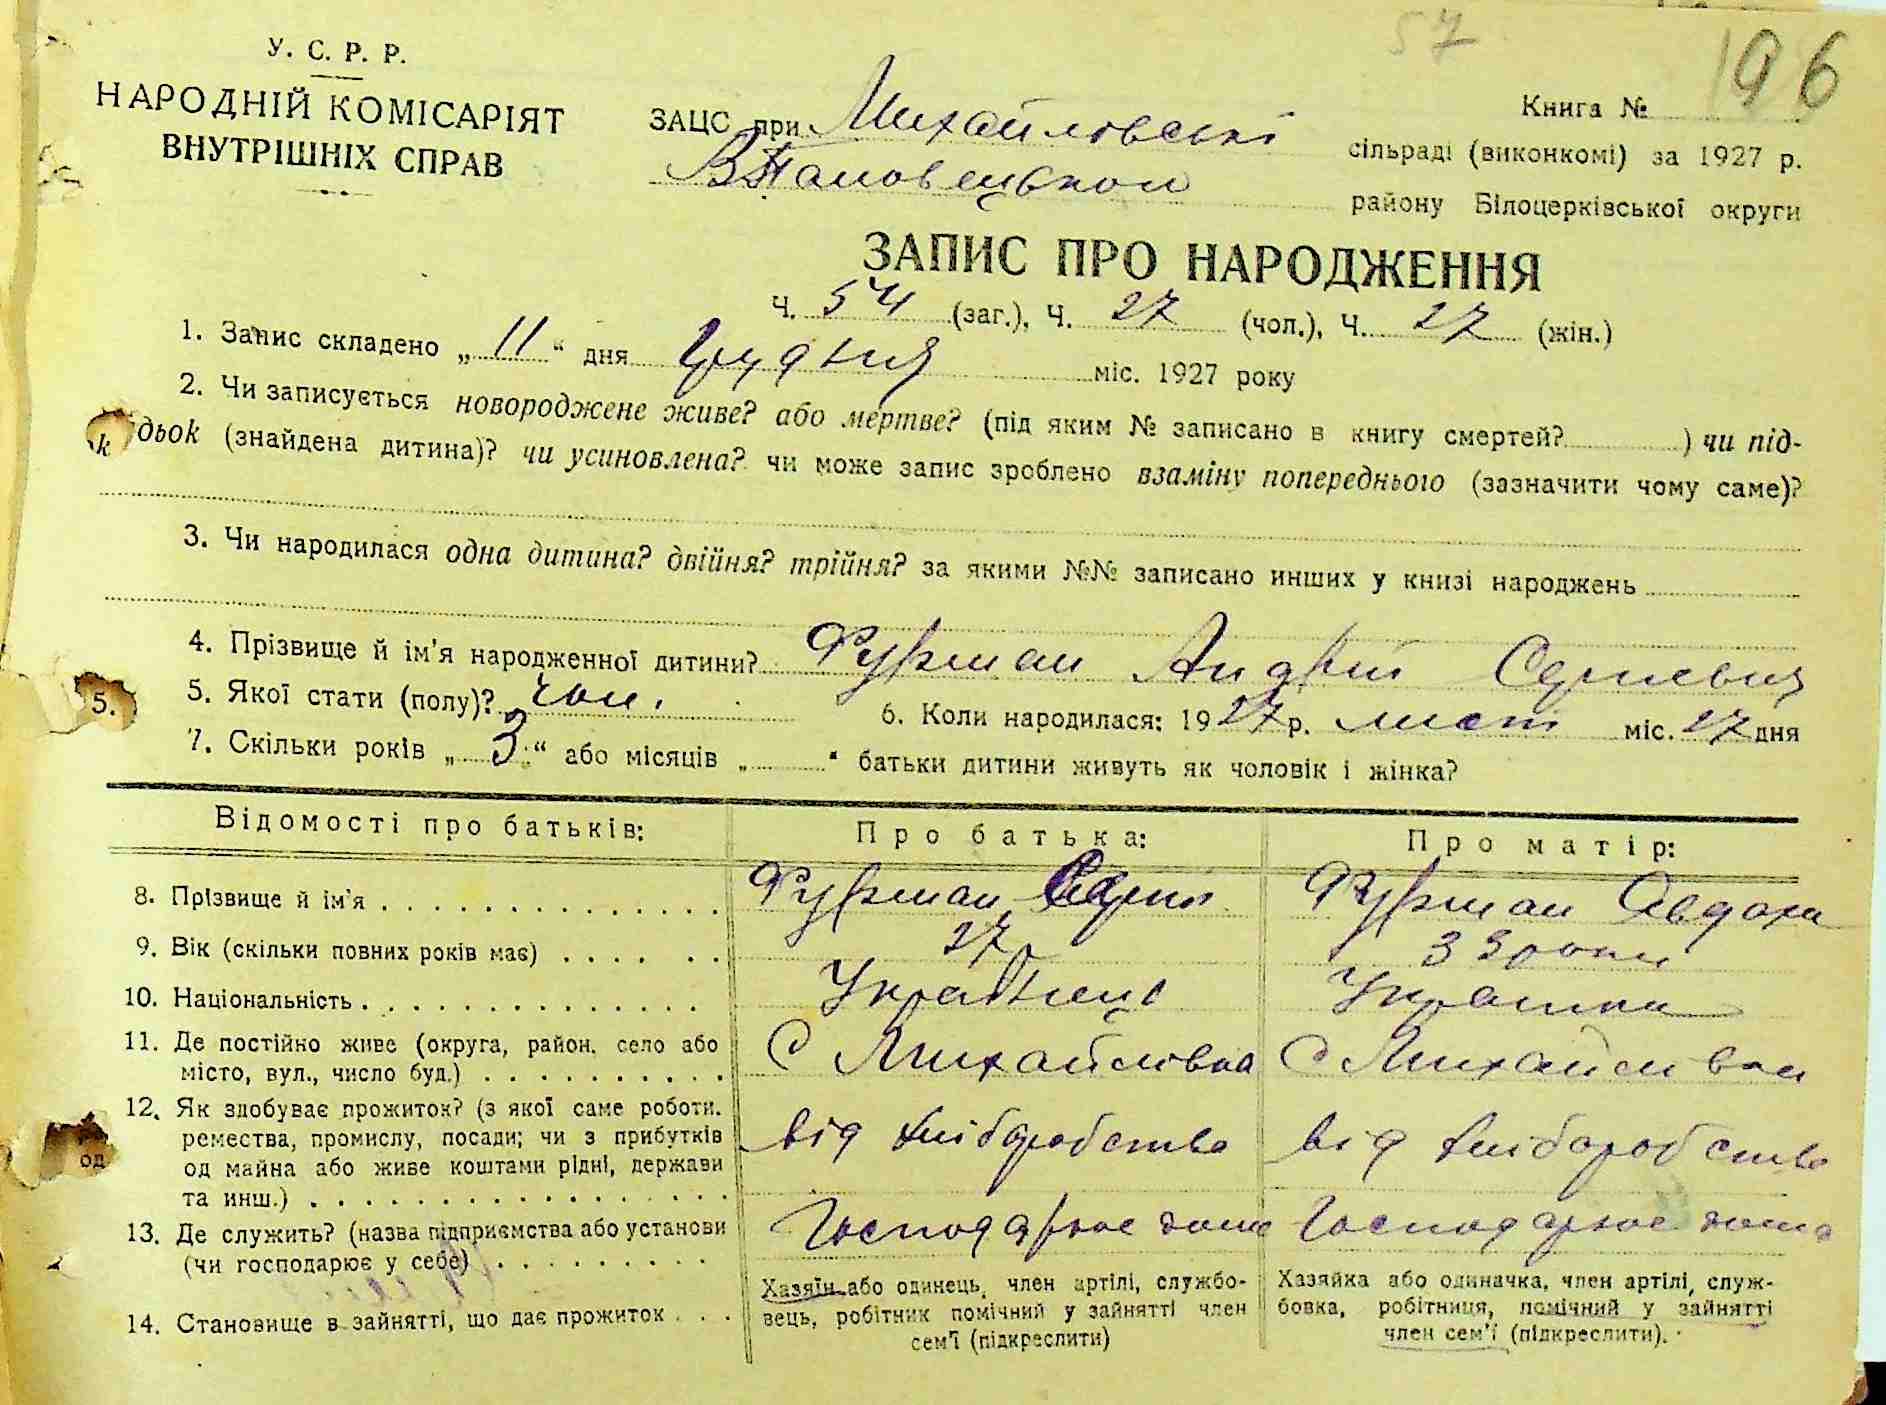 57
196
У. С. Р. Р.
НАРОДНІЙ КОМІСАРІЯТ
ВНУТРІШНІХ СПРАВ
Книга №
ЗАЦС при Михайловські сільраді (виконкомі) за 1927 р.
району Білоцерківської округи
ЗАПИС ПРО НАРОДЖЕННЯ
Ч. 54 (заг.), Ч. 27 (чол.), Ч. 27 (жін.)
1. Запис складено „ 11 “ дня Грудня міс. 1927 року
2. Чи записується новороджене живе? або мертве? (під яким № записано в книгу смертей? ) чи під-
дьок (знайдена дитина)? чи усиновлена? чи може запис зроблено взаміну попереднього (зазначити чому саме)?
3. Чи народилася одна дитина? двійня? трійня? за якими №№ записано инших у книзі народжень
4. Прізвище й ім'я народженної дитини? Фурман Андрій Сергієвич
5. Якої стати (полу)? чол. 6. Коли народилася: 1927 р. лист міс. 27 дня
5.
7. Скільки років „ 3 “ або місяців „ “ батьки дитини живуть як чоловік і жінка?
Відомості про батьків: Про батька: Про матір:
8. Прізвище й ім'я Фурман Сергій Фурман Явдоха
9. Вік (скільки повних років має) 27 33 роки
10. Національність Українець Українка
11. Де постійно живе (округа, район, село або
місто, вул., число буд.) С Михайлівка С Михайлівка
12. Як здобуває прожиток? (з якої саме роботи,
ремества, промислу, посади; чи з прибутків
од майна або живе коштами рідні, держави
та инш.) від хліборобства від хліборобства
од
13. Де служить? (назва підприємства або установи
(чи господарює у себе) Господарює дома Господарює дома
14. Становище в зайнятті, що дає прожиток
Хазяїн або одинець, член артілі, службо-
вець, робітник помічний у зайнятті член
сем'ї (підкреслити)
Хазяйка або одиначка, член артілі, служ-
бовка, робітниця, помічний у зайнятті
член сем'ї (підкреслити).